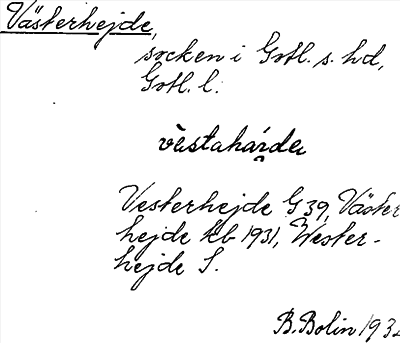 Västerhejde,
socken i Gotl. s. hd,
Gotl. l.
Vesterhejde G 39, Väster
hejde kb 1931, Wester-
hejde S.
B. Bolin 193